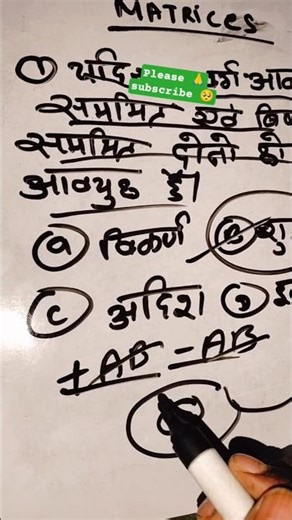 MATRICES
① यदि
Please 🙏
subscribe 🥺
सममित एवं
सममित दोनों हो
आव्यूह है।
ⓐ विकर्ण Ⓑ
Ⓒ अदिश Ⓓ
+AB - AB